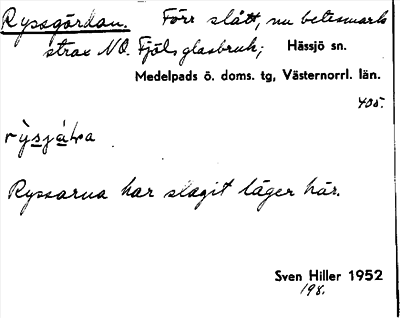 Ryssgårdan. Förr slått, nu betesmark
strax NO. Fjäls glasbruk; Hässjö sn.
Medelpads ö. doms. tg, Västernorrl. län.
405.
Ryssarna har slagit läger här.
Sven Hiller 1952
198.